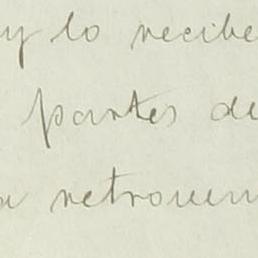 y lo recibe
partes de
a retrouem